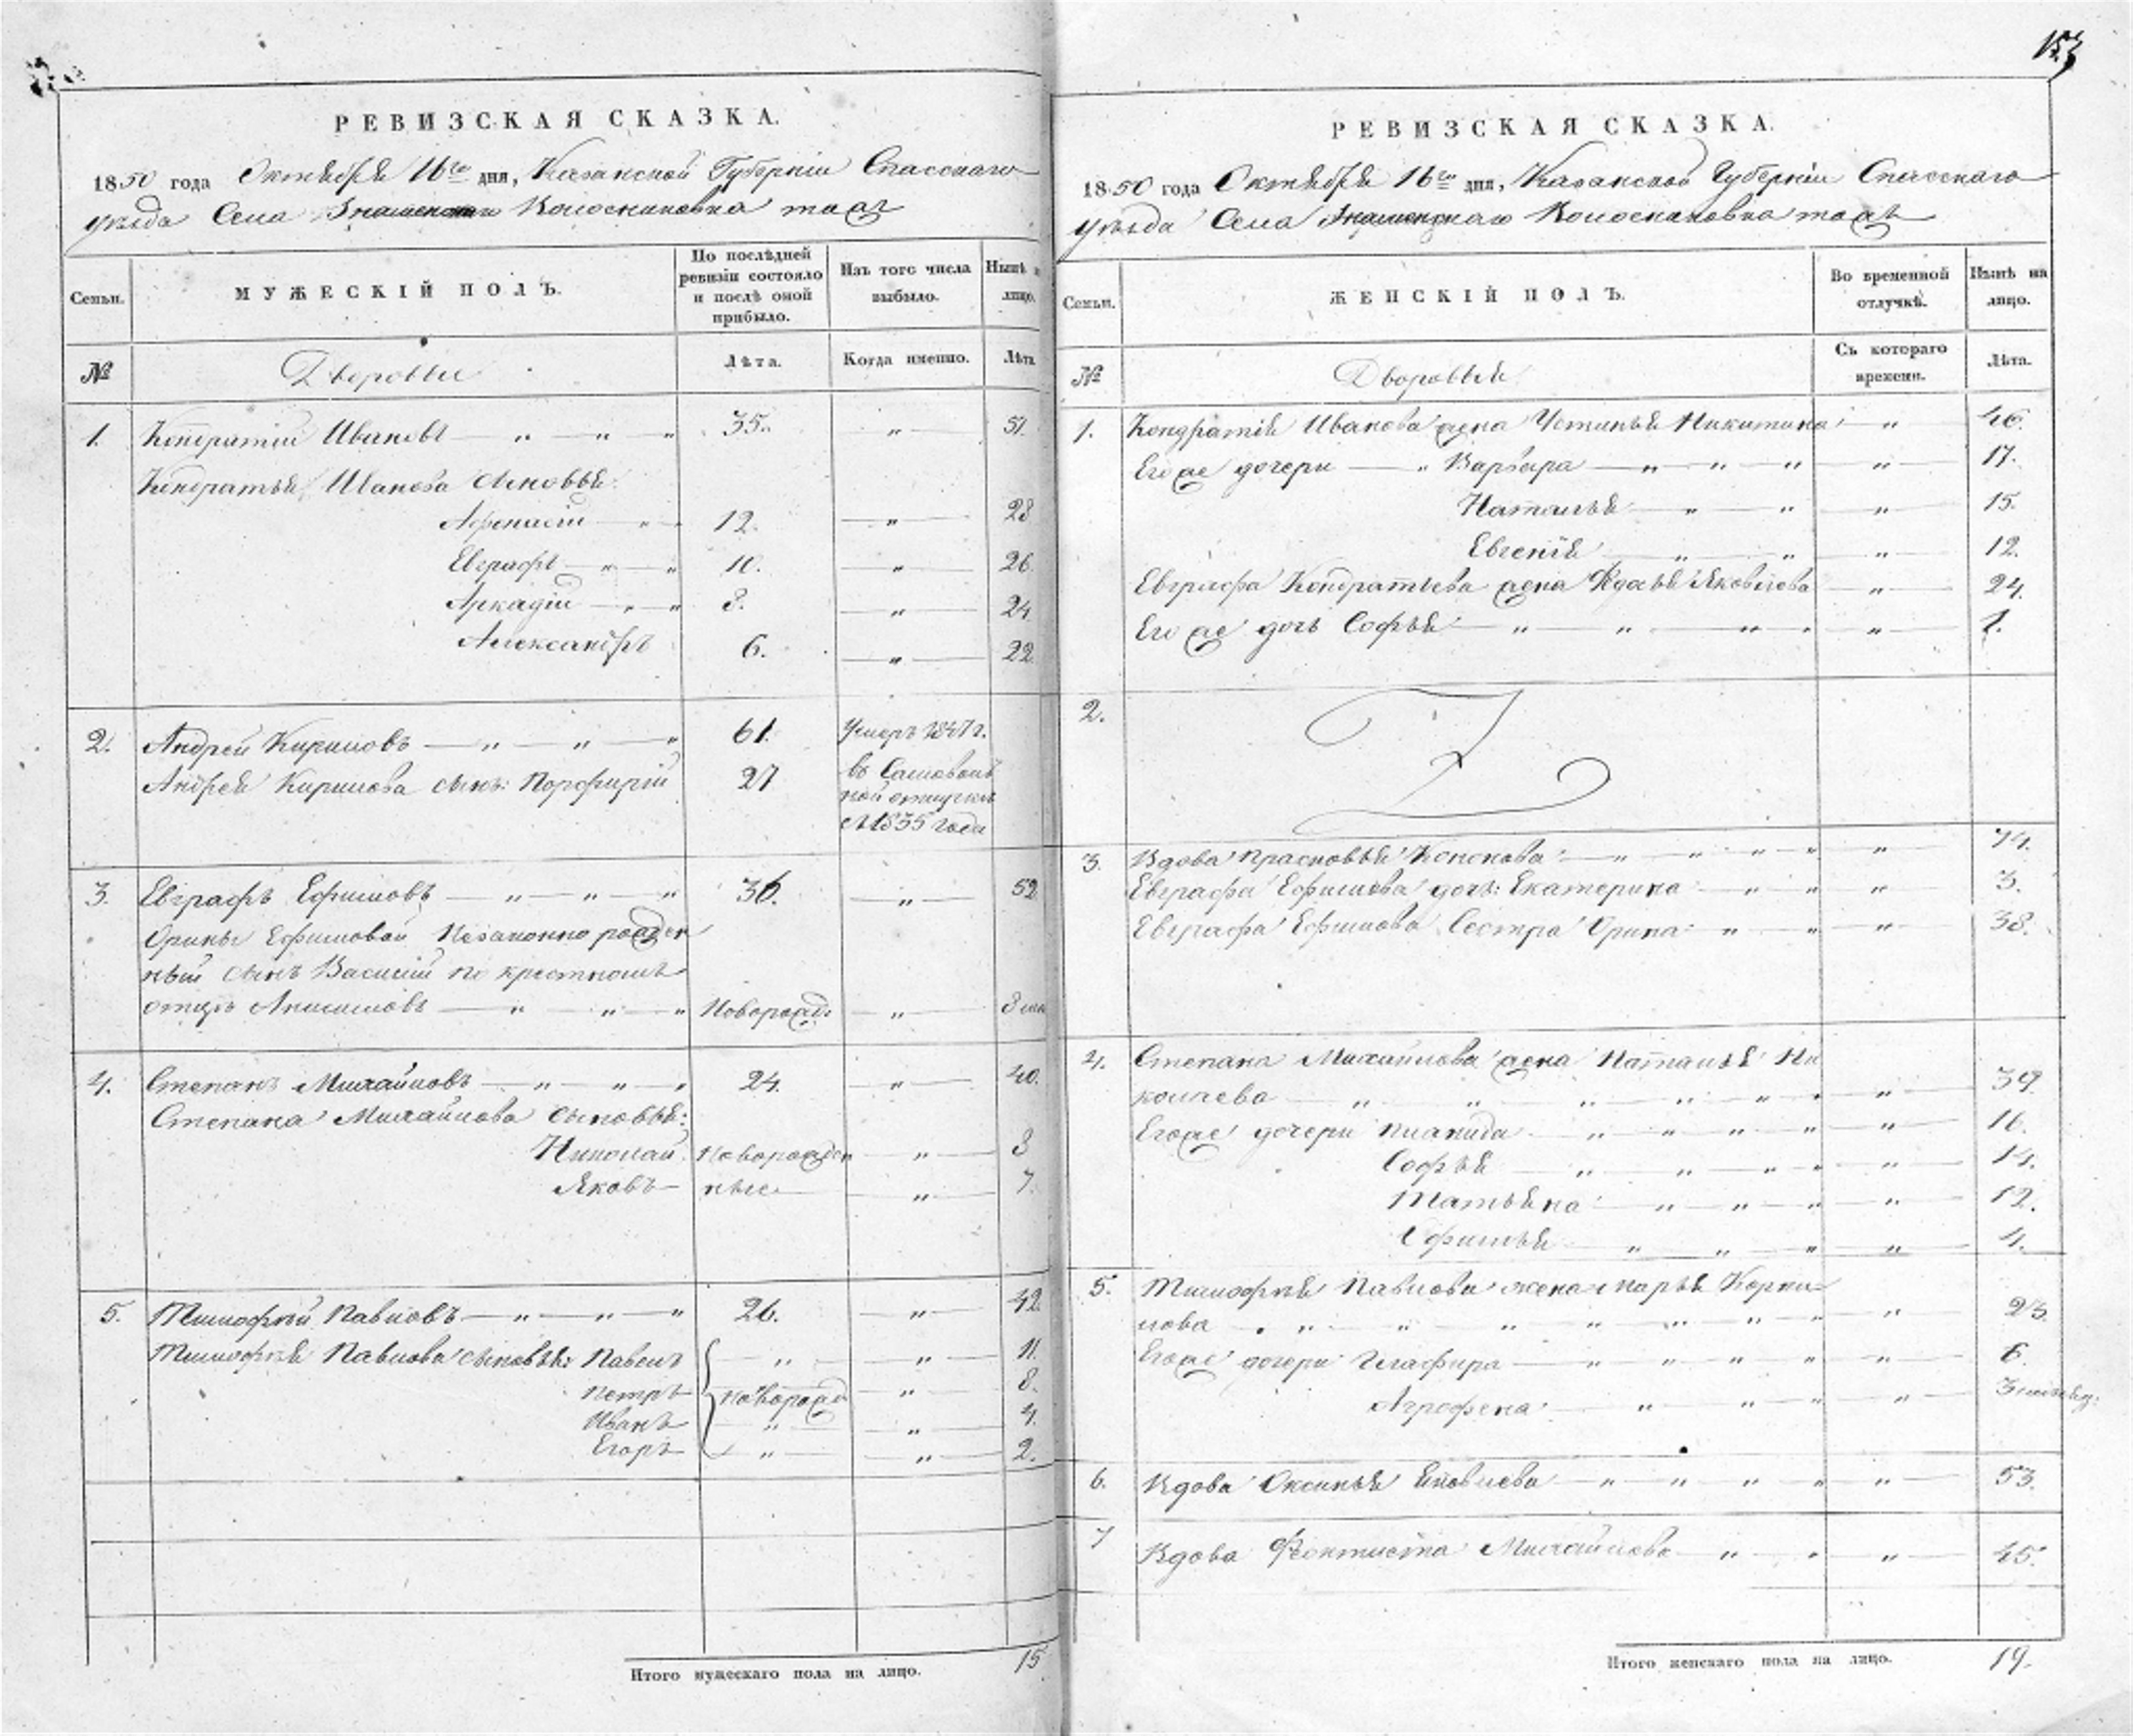 153
РЕВИЗСКАЯ СКАЗКА.
1850 года Октября 16го дня, Казанской Губернiи Спасскаго
уѣзда Села Знаменскаго Колоскиковка тожъ
Семьи.
МУЖЕСКІЙ ПОЛЪ.
По послѣдней ревизіи состояло и послѣ оной прибыло.
Изъ того числа выбыло.
Нынѣ на лицо.
№
Дворовые
Лѣта.
Когда именно.
Лѣта
1. Кондратій Ивановъ — „ — „ — „ 35. — „ — 51.
Кондратья Иванова сыновья:
Афанасій — „ — 12. — „ — 28
Евграфъ — „ — „ 10. — „ — 26
Аркадій — „ — „ 8. — „ — 24
Александръ 6. — „ — 22
2. Андрей Кириловъ — „ — „ — „ 61. Умеръ 1847 г.
Андрея Кирилова сынъ: Порфирій 27 въ Самоволь
ной отлучкѣ
съ 1835 года
3. Евграфъ Ефимовъ — „ — „ — „ 36. — „ — 52
Орины Ефимовой Незаконно рожден
ный сынъ Василій по крестному
отцу Анисимовъ — „ — „ — „ Новорожд. — „ — 8 ме
4. Степанъ Михайловъ — „ — „ — „ 24. — „ — 40.
Степана Михайлова сыновья:
Николай Новорожден — „ — 8
Яковъ — ные — — „ — 7.
5. Тимофѣй Павловъ — „ — „ — „ 26. — „ — 42.
Тимофѣя Павлова сыновья: Павелъ — „ — — „ — 11.
Петръ Новорожд — „ — 8.
Иванъ — „ — — „ — 4.
Егоръ — „ — — „ — 2.
Итого мужескаго пола на лицо. 15
РЕВИЗСКАЯ СКАЗКА.
1850 года Октября 16го дня, Казанской Губернiи Спасскаго
уѣзда Села Знаменскаго Колоскиковка тожъ
Семьи.
ЖЕНСКІЙ ПОЛЪ.
Во временной отлучкѣ.
Нынѣ на лицо.
№
Дворовыя
Съ котораго времени.
Лѣта.
1. Кондратія Иванова жена Устинья Никитина — „ — 46.
Его же дочери — „ Варвара — „ — „ — „ — „ — 17.
Наталья — „ — „ — „ — 15.
Евгенія — „ — „ — „ — 12.
Евграфа Кондратьева жена Яковлева — „ — 24.
Его же дочь Софья — „ — „ — „ — „ — 1.
2.
3. Вдова Прасковья Кононова — „ — „ — „ — „ — „ — 74.
Евграфа Ефимова дочь: Екатерина — „ — „ — „ — 3.
Евграфа Ефимова Сестра Орина — „ — „ — „ — 38.
4. Степана Михайлова жена Наталья Ни
колаева — „ — „ — „ — „ — „ — „ — 39.
Его же дочери Пиамида — „ — „ — „ — „ — „ — 16.
Софья — „ — „ — „ — „ — 14.
Татьяна — „ — „ — „ — „ — 12.
Офимья — „ — „ — „ — „ — 4.
5. Тимофѣя Павлова жена Марья Корни
лова — „ — „ — „ — „ — „ — „ — „ — 23.
Его же дочери Глафира — „ — „ — „ — „ — „ — 6.
Агрофена — „ — „ — „ — „ — 3 мѣсяц.
6. Вдова Оксинья Яковлева — „ — „ — „ — „ — „ — 53.
7 Вдова Феоктиста Михайлова — „ — „ — „ — 45.
Итого женскаго пола на лицо. 19.